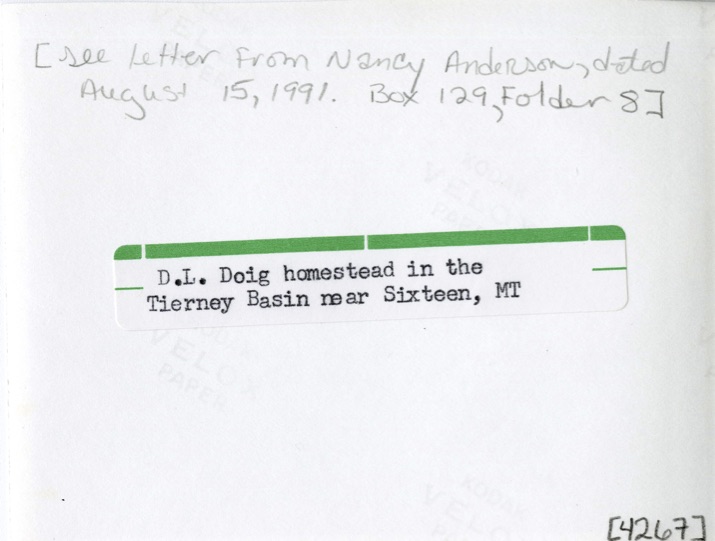 [see letter from Nancy Anderson, dated
August 15, 1991. Box 129, Folder 8]
KODAK
VELOX
PAPER
D.L. Doig homestead in the
Tierney Basin near Sixteen, MT
VELOX
PAPER
KODAK
VELOX
[4267]